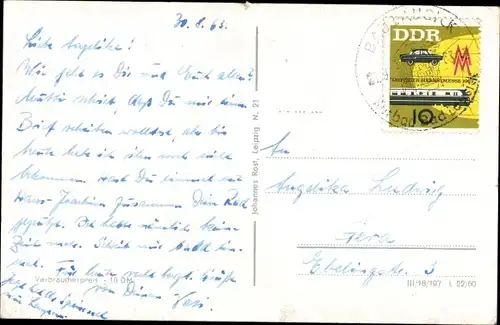 30.8.63
Liebe Angelika!
Wie geht es Dir und Euch allen?
Mutti schrieb, daß Du mir einen
Brief schreiben wolltest, aber bis
heute habe ich ihn noch nicht
bekommen. Hast Du einmal mit
Hans-Joachim zusammen Dein Rad
geputzt. Ich habe nämlich keine
Zeit mehr. Schreib mir bald
Für heute recht herzl. Grüße
von Deinem
Verbraucherpreis - 10 DM
Johannes Rost, Leipzig N. 21
BAD LAUSICK
DDR
MM
LEIPZIGER HERBSTMESSE
10
An
Angelika Ludwig
Gera
Ebelingstr. 3
III/18/197 L 22/60